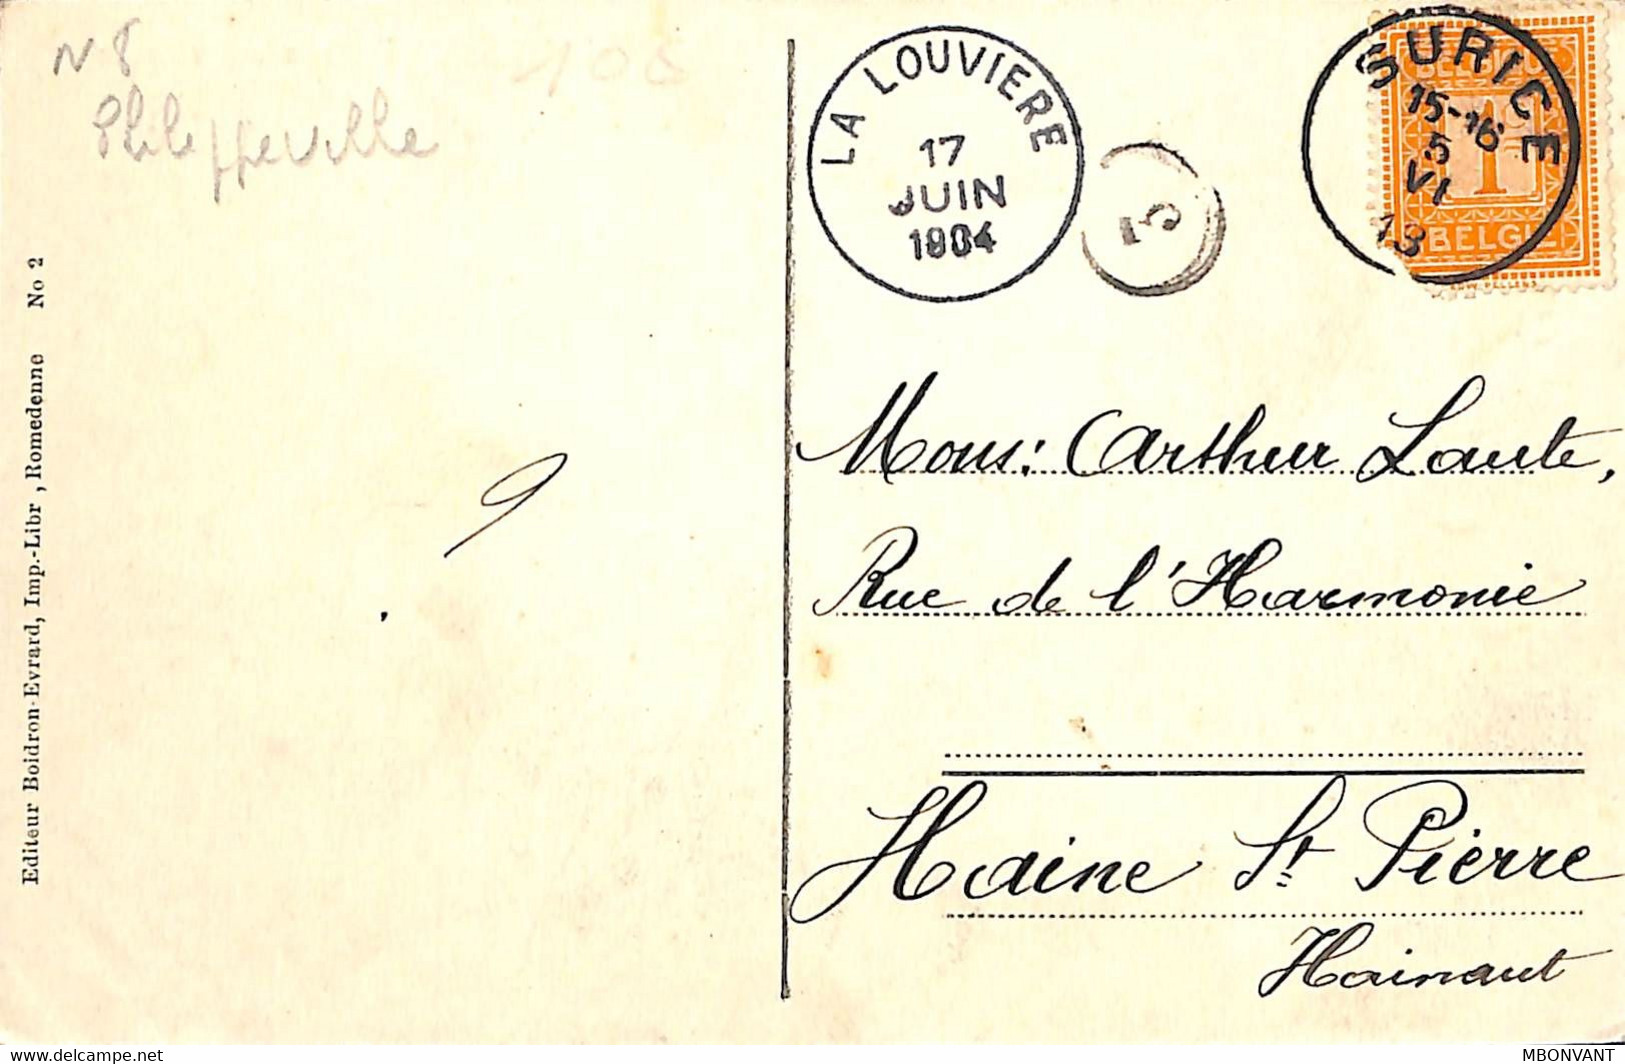 N 8
Philippeville
108
LA LOUVIERE
17
JUIN
1904
15
SURICE
15-16
5
VI
13
1c
BELGIË
Editeur Boidron-Evrard, Imp.-Libr, Romedenne No 2
9
Mons: Arthur Laute,
Rue de l'Harmonie
Haine St Pierre
Hainaut
MBONVANT